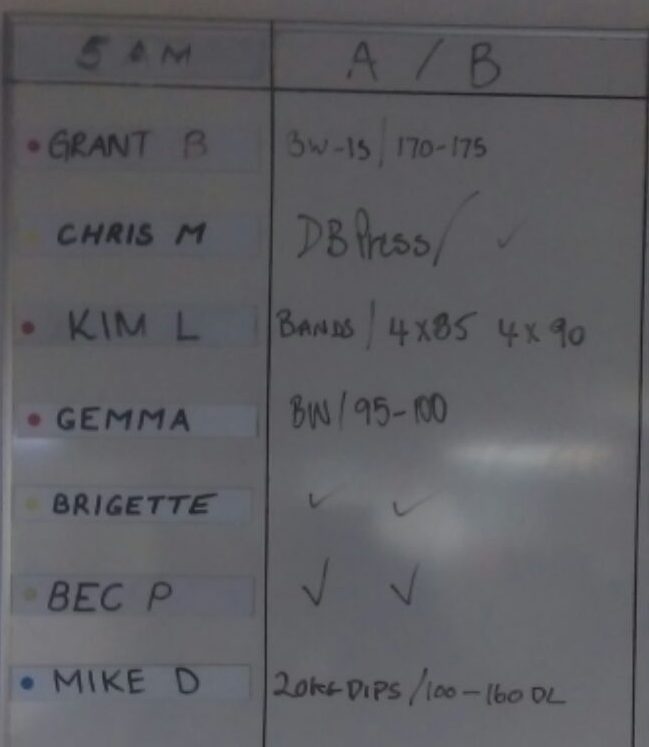 5 AM A / B
GRANT B BW-15 / 170-175
CHRIS M DB Press / ✓
KIM L BANDS / 4x85 4x90
GEMMA BW / 95-100
BRIGETTE ✓ ✓
BEC P ✓ ✓
MIKE D 20KG DIPS / 100-160 DL